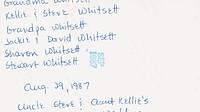 Grandma Whitsett
Kelli & Steve Whitsett
Grandpa Whitsett
Jackie & David Whitsett
Sharon Whitsett
Stewart Whitsett
Aug. 29, 1987
Uncle Steve & Aunt Kellie's